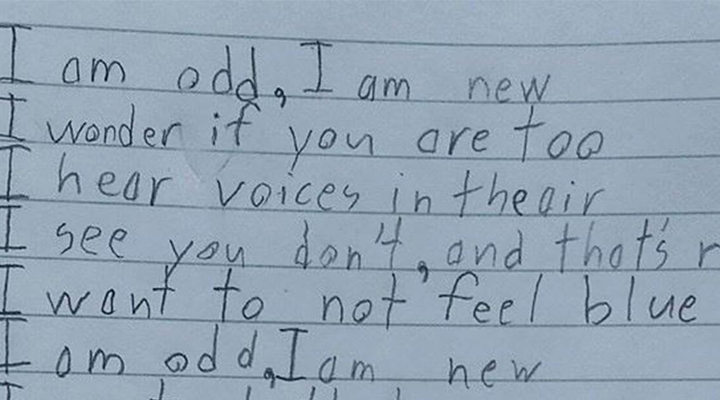 I am odd, I am new
I wonder if you are too
I hear voices in the air
I see you don't, and that's
I want to not feel blue
I am odd, I am new